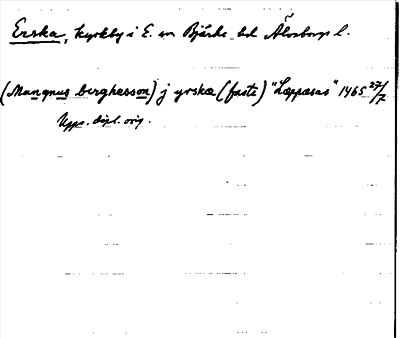 Erska, kyrkby i E. sn Bjärke hd Älvsborgs l.
(Mangnus berghasson) j yrska (faste) "Læppæsas" 1465 27/7
Upps. dipl. orig.